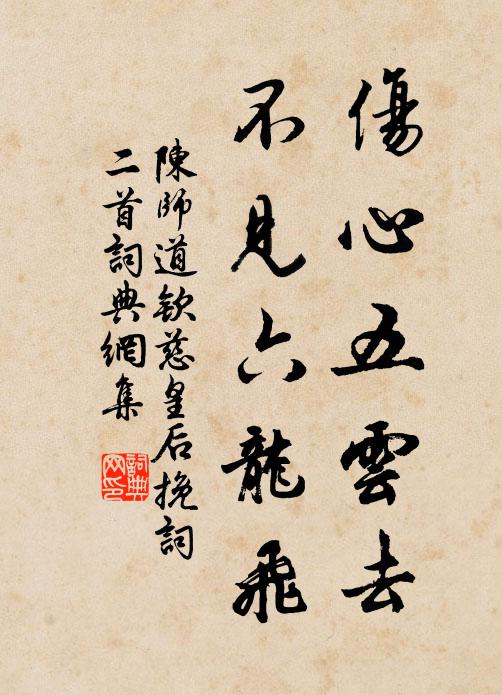 傷心五雲去
不見六龍飛
陳師道欽慈皇后挽詞
二首詞典網集
詞典
网印